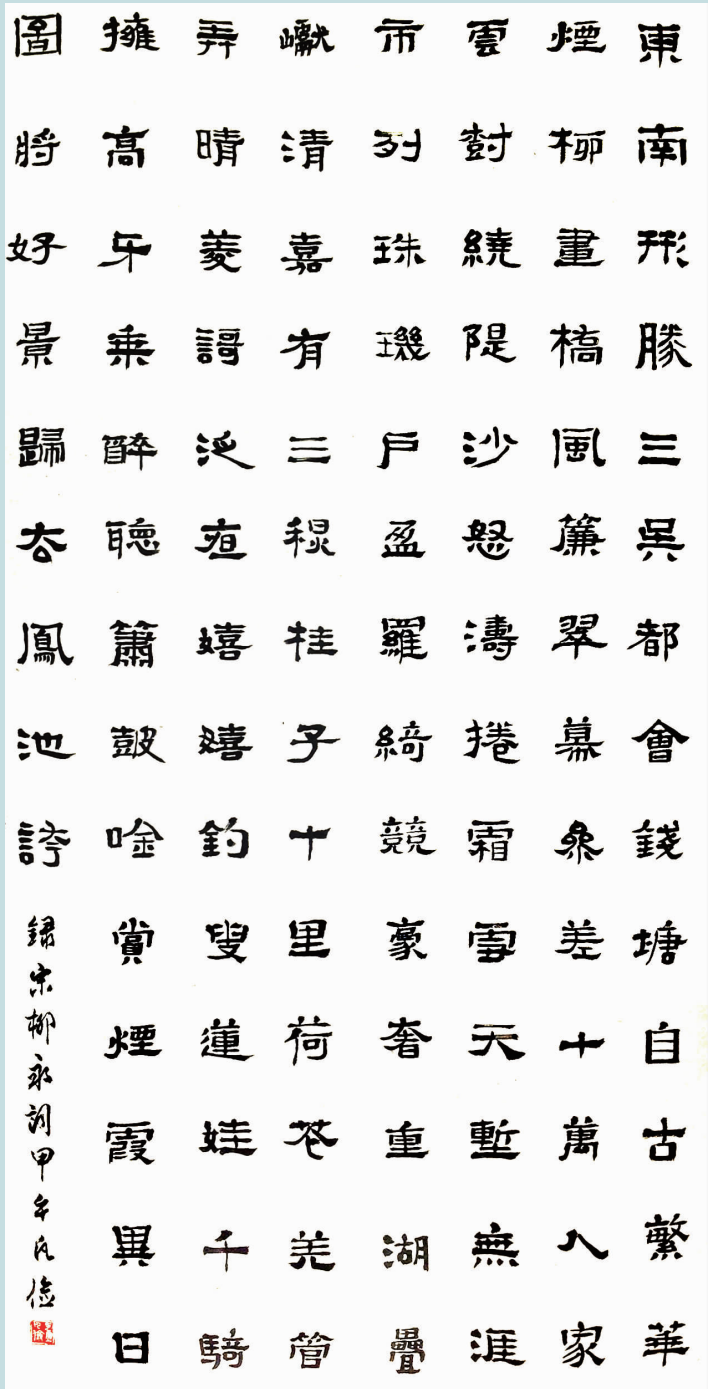 東南形勝三吳都會錢塘自古繁華
煙柳畫橋風簾翠幕參差十萬人家
雲樹繞隄沙怒濤捲霜雪天塹無涯
市列珠璣戶盈羅綺競豪奢重湖疊
巘清嘉有三秋桂子十里荷花羌管
弄晴菱謌泛夜嬉嬉釣叟蓮娃千騎
擁高牙乘醉聽簫鼓唫賞煙霞異日
圖將好景歸去鳳池誇
錄宋柳永詞甲午